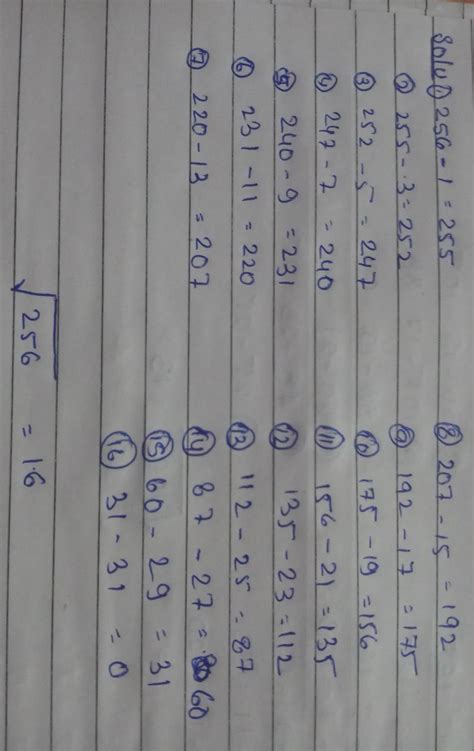 Solu ① 256 - 1 = 255
② 255 - 3 = 252
③ 252 - 5 = 247
④ 247 - 7 = 240
⑤ 240 - 9 = 231
⑥ 231 - 11 = 220
⑦ 220 - 13 = 207
⑧ 207 - 15 = 192
⑨ 192 - 17 = 175
⑩ 175 - 19 = 156
⑪ 156 - 21 = 135
⑫ 135 - 23 = 112
⑬ 112 - 25 = 87
⑭ 87 - 27 = 60
⑮ 60 - 29 = 31
⑯ 31 - 31 = 0
√256 = 16